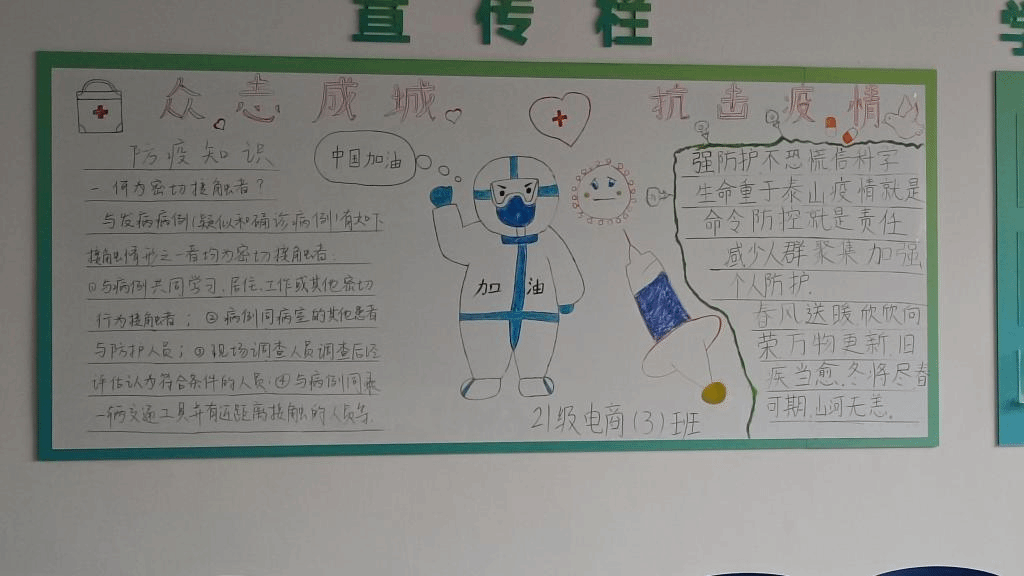 宣传栏
学
众志成城
抗击疫情
防疫知识
一 何为密切接触者？
与发病病例(疑似和确诊病例)有如下
接触情形之一者均为密切接触者:
①与病例共同学习、居住、工作或其他密切
行为接触者；②病例同病室的其他患者
与防护人员；③现场调查人员调查后经
评估认为符合条件的人员.④与病例同乘
一辆交通工具并有近距离接触的人员等.
中国加油
加油
21级电商(3)班
强防护不恐慌信科学
生命重于泰山疫情就是
命令防控就是责任
减少人群聚集加强
个人防护.
春风送暖欣欣向
荣万物更新.旧
疾当愈.冬将尽春
可期.山河无恙.